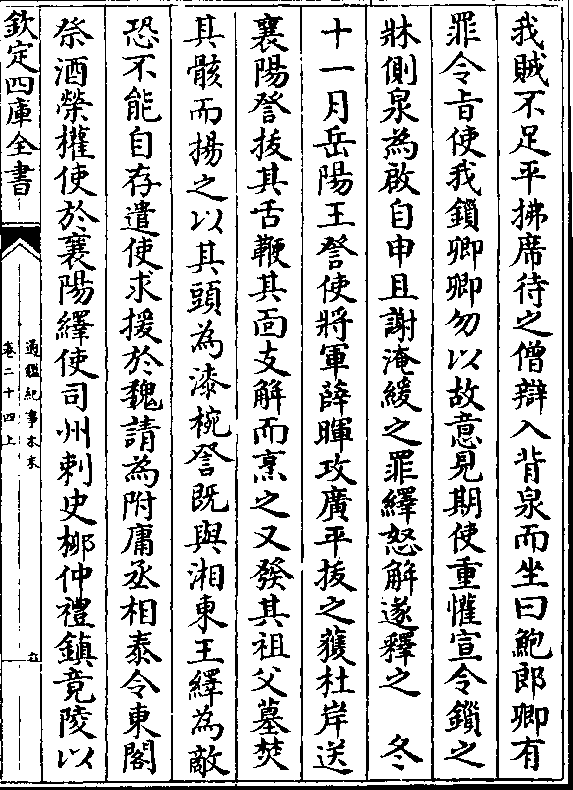 我賊不足平拂席待之僧辯入背泉而坐曰鮑郎卿有
罪令㫖使我鎖卿卿勿以故意見期使重懽宣令鎖之
牀側泉為啟自申且謝淹緩之罪繹怒解遂釋之　冬
十一月岳陽王詧使將軍薛暉攻廣平拔之獲杜岸送
襄陽詧拔其舌鞭其面支解而烹之又發其祖父墓焚
其骸而揚之以其頭為漆椀詧既與湘東王繹為敵
恐不能自存遣使求援於魏請為附庸丞相泰令東閣
祭酒榮權使於襄陽繹使司州刺史柳仲禮鎮竟陵以
欽定四庫全書
通鑑紀事本末
卷二十四上
五